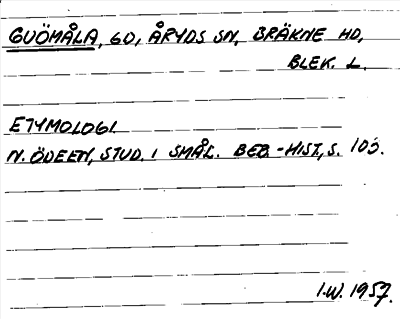 GUÖMÅLA, GD, ÅRYDS SN, BRÄKNE HD,
BLEK. L.
ETYMOLOGI
N. ÖDEEN, STUD. I SMÅL. BEB.-HIST, S. 103.
I.W. 1957.